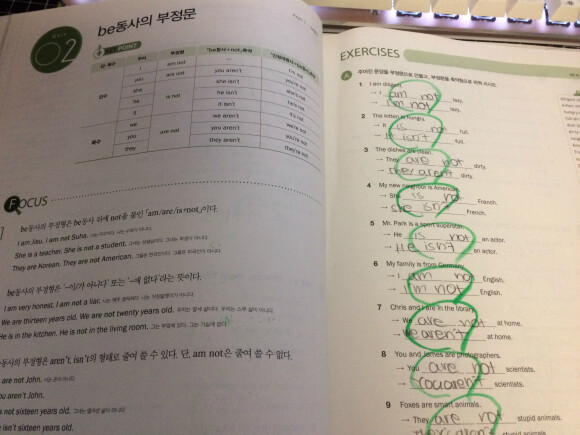 Unit
02
be동사의 부정문
POINT
단·복수 주어 부정형 「be동사+not」축약
단수 I am not — I'm not
you are not you aren't you're not
she is not she isn't she's not
he he isn't he's not
it it isn't it's not
복수 we are not we aren't we're not
you you aren't you're not
they they aren't they're not
FOCUS
be동사의 부정형은 be동사 뒤에 not을 붙인 「am/are/is+not」이다.
I am Jisu. I am not Suha.
She is a teacher. She is not a student.
They are Korean. They are not American.
be동사의 부정형은 '~이/가 아니다' 또는 '~에 없다'라는 뜻이다.
I am very honest. I am not a liar.
We are thirteen years old. We are not twenty years old.
He is in the kitchen. He is not in the living room.
be동사의 부정형은 aren't, isn't의 형태로 줄여 쓸 수 있다. 단, am not은 줄여 쓸 수 없다.
are not John.
aren't John.
is not sixteen years old.
isn't sixteen years old.
EXERCISES
A 주어진 문장을 부정문으로 만들고, 부정문을 축약형으로 바꿔 쓰시오.
1 I am diligent.
→ I am not lazy.
→ I'm not lazy.
2 The kitten is hungry.
→ It is not full.
→ It isn't full.
3 The dishes are clean.
→ They are not dirty.
→ they aren't dirty.
4 My new neighbour is American.
→ She is not French.
→ she isn't French.
5 Mr. Park is a sport superstar.
→ He is not an actor.
→ He isn't an actor.
6 My family is from Germany.
→ I am not English.
→ I'm not English.
7 Chris and I are in the library.
→ We are not at home.
→ we aren't at home.
8 You and James are photographers.
→ You are not scientists.
→ you aren't scientists.
9 Foxes are smart animals.
→ They are not stupid animals.
→ They aren't stupid animals.